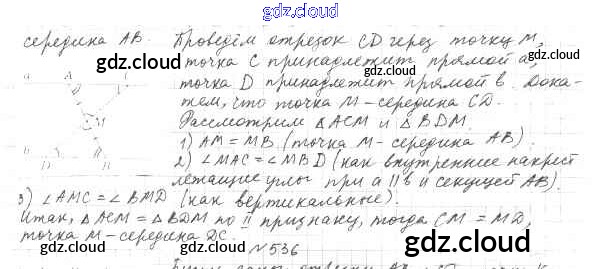 gdz.cloud
середина AB. Проведём отрезок CD через точку M,
точка C принадлежит прямой a,
точка D принадлежит прямой b. Дока-
жем, что точка M - середина CD.
Рассмотрим △ ACM и △ BDM.
1) AM = MB (точка M - середина AB)
2) ∠MAC = ∠MBD (как внутренние накрест
лежащие углы при a || b и секущей AB).
3) ∠AMC = ∠BMD (как вертикальные).
Итак, △ ACM = △ BDM по II признаку, тогда CM = MD,
точка M - середина DC.
№ 536
gdz.cloud
gdz.cloud
gdz.cloud
gdz.cloud
gdz.cloud
gdz.cloud
gdz.cloud
gdz.cloud
gdz.cloud